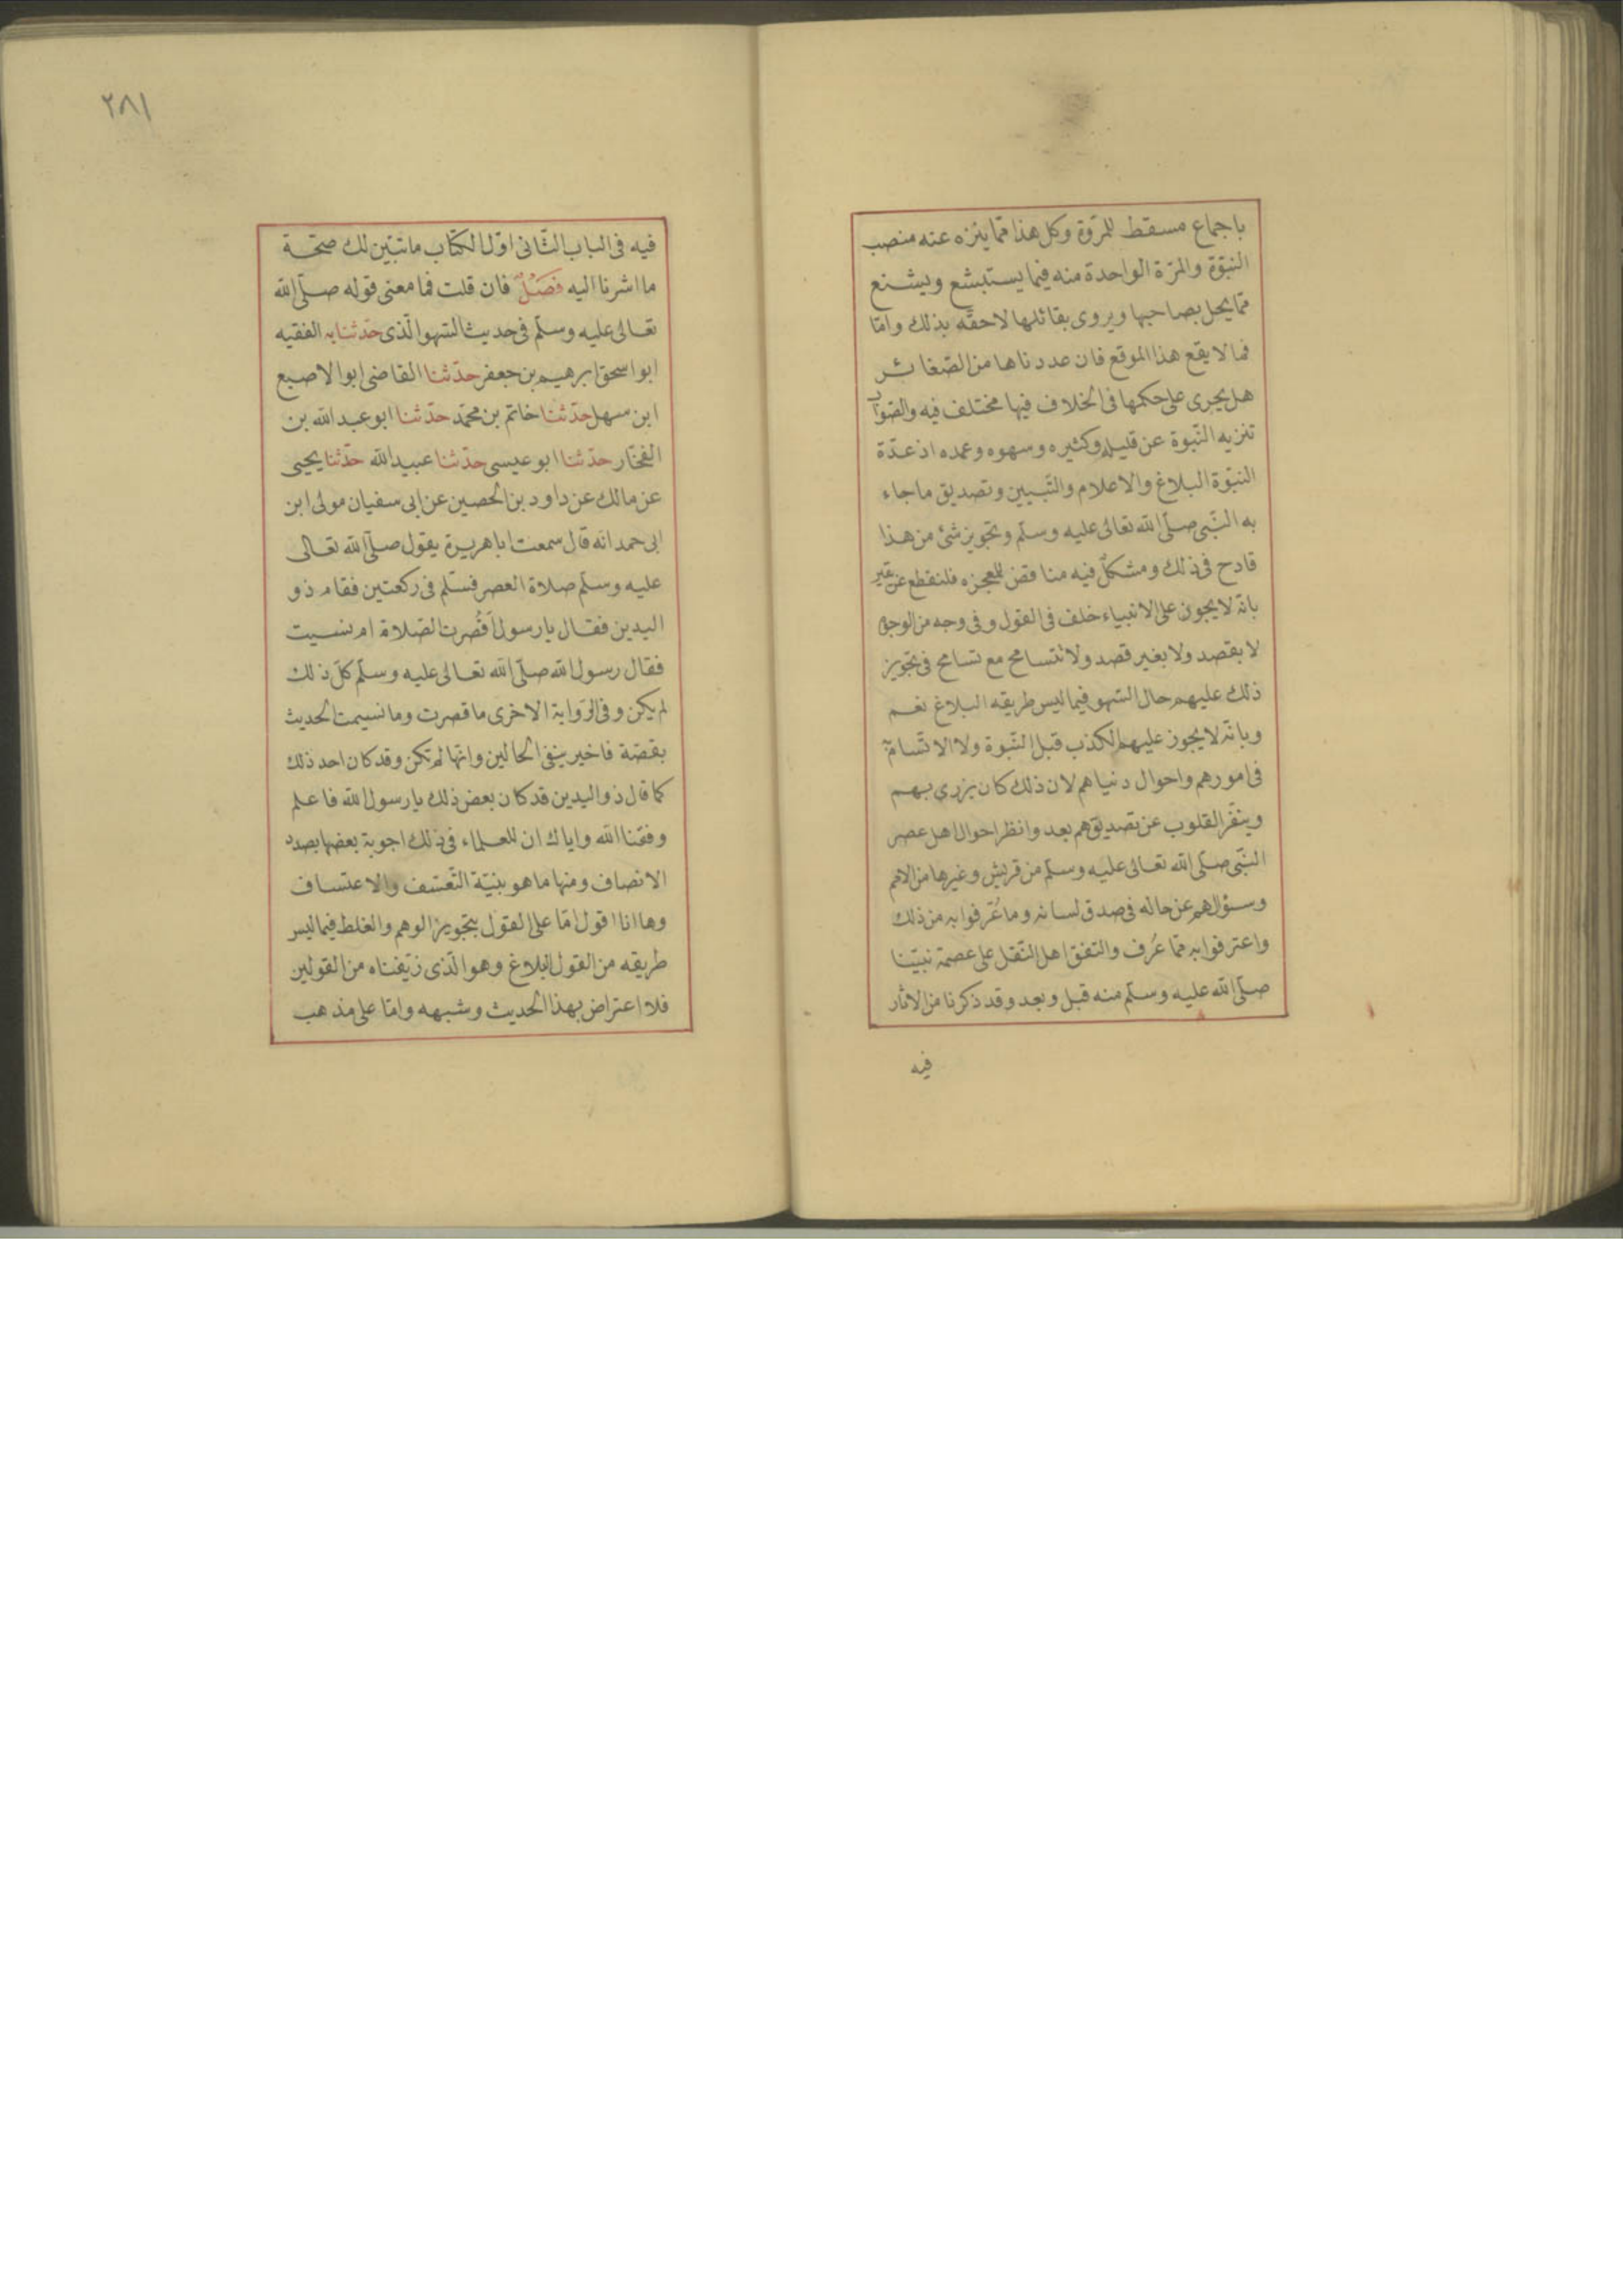 باجماع مسقط للمروّة وكل هذا ممّا ينزه عنه منصب
النبوّة والمرّة الواحدة منه فيما يستبشع ويشنع
ممّا يحل بصاحبها ويروى بقائلها لاحقه بذلك وامّا
فما لا يقع هذا الموقع فان عددناها من الصّغائر
هل يجرى على حكمها فى الخلاف فيها مختلف فيه والصّواب
تنزيه النّبوة عن قليله وكثيره وسهوه وعمده اذ عدّة
النبوّة البلاغ والاعلام والتّبيين وتصديق ما جاء
به النّبى صلّى الله تعالى عليه وسلّم وتجويز شئ من هذا
قادح فى ذلك ومشكّل فيه مناقض للمعجزه فلنقطع عن
بانّه لا يجوز على الانبياء خلف فى القول وفى وجه من الوجوه
لا بقصد ولا بغير قصد ولا نتسامح مع تسامح فى تجويز
ذلك عليهم حال السّهو فيما ليس طريقه البلاغ نعم
وبانّه لا يجوز عليهم الكذب قبل النّبوة ولا الاتّسام به
فى امورهم واحوال دنياهم لان ذلك كان يزرى بهم
وينفّر القلوب عن تصديقهم بعد وانظر احوال اهل عصر
النّبى صلّى الله تعالى عليه وسلّم من قريش وغيرها من الامم
وسؤالهم عن حاله فى صدق لسانه وما عُرّفوا به من ذلك
واعترفوا به ممّا عُرف والتفق اهل النّقل على عصمة نبيّنا
صلّى الله عليه وسلّم منه قبل وبعد وقد ذكرنا من الاثار
فيه
٢٨١
فيه فى الباب الثّانى اوّل الكتاب ما تبيّن لك صحّة
ما اشرنا اليه فَصَلٌ فان قلت فما معنى قوله صلّى الله
تعالى عليه وسلّم فى حديث السّهو الّذى حدّثنا به الفقيه
ابو اسحق ابرهيم بن جعفر حدّثنا القاضى ابو الاصبع
ابن سهل حدّثنا خاتم بن محمّد حدّثنا ابو عبد الله بن
الفخّار حدّثنا ابو عيسى حدّثنا عبيد الله حدّثنا يحيى
عن مالك عن داود بن الحصين عن ابى سفيان مولى ابن
ابى حمد انّه قال سمعت ابا هريرة يقول صلّى الله تعالى
عليه وسلّم صلاة العصر فسلّم فى ركعتين فقام ذو
اليدين فقال يا رسول اَقُصرت الصّلاة ام نسيت
فقال رسول الله صلّى الله تعالى عليه وسلّم كلّ ذلك
لم يكن وفى الرّواية الاخرى ما قصرت وما نسيت الحديث
بقصّة فاخبر بنفى الحالين وانّها لم تكن وقد كان احد ذلك
كما قال ذو اليدين قد كان بعض ذلك يا رسول الله فاعلم
وفقنا الله واياك ان للعلماء فى ذلك اجوبة بعضها بصدد
الانصاف ومنها ما هو بنيّة التّعسّف والاعتساف
وها انا اقول امّا على القول بتجويز الوهم والغلط فيما ليس
طريقه من القول البلاغ وهو الّذى زيّفناه من القولين
فلا اعتراض بهذا الحديث وشبهه وامّا على مذهب